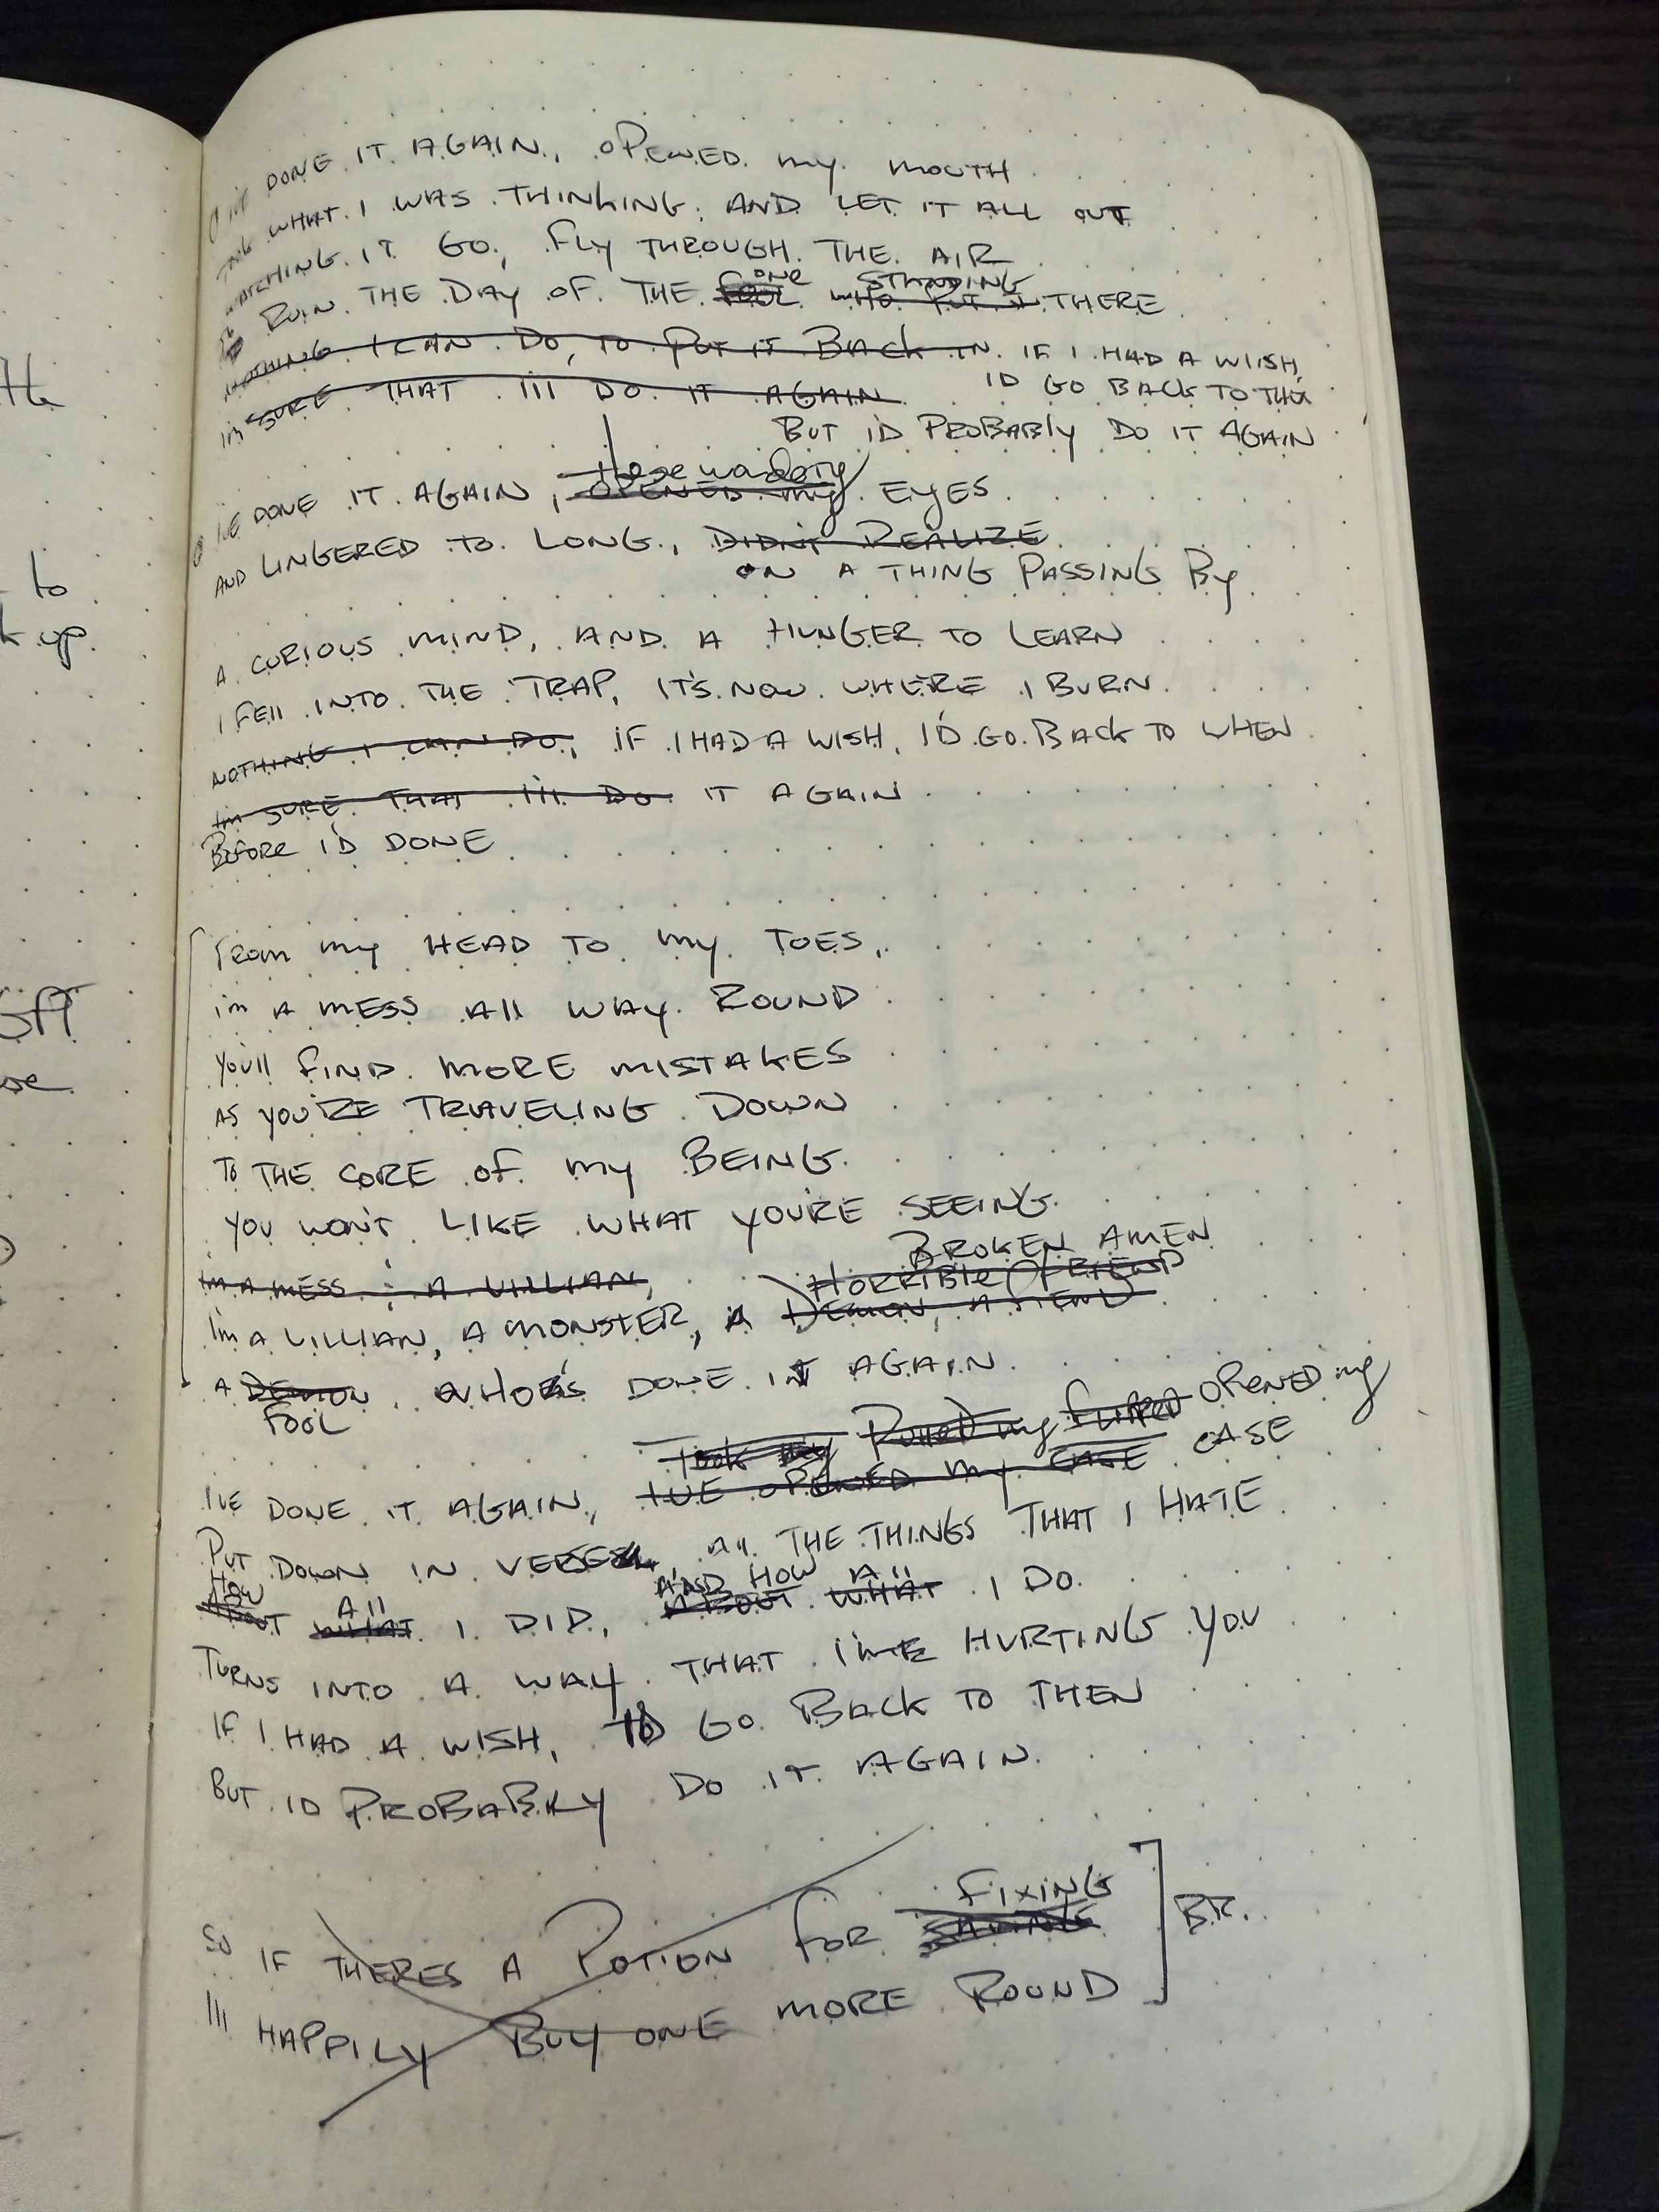 I'VE DONE IT AGAIN, OPENED MY MOUTH
TOOK WHAT I WAS THINKING AND LET IT ALL OUT
WATCHING IT GO, FLY THROUGH THE AIR
ONE STANDING
RUIN THE DAY OF THE FOOL WHO PUT IT THERE
NOTHING I CAN DO, TO PUT IT BACK IN IF I HAD A WIISH,
I'M SURE THAT I'll DO IT AGAIN I'D GO BACK TO THEN
BUT I'D PROBABLY DO IT AGAIN
these wandering
I'VE DONE IT AGAIN, OPENED MY EYES
AND LINGERED TO LONG, DIDN'T REALIZE
ON A THING PASSING By
A CURIOUS MIND, AND A HUNGER TO LEARN
I FEll INTO THE TRAP, IT'S NOW WHERE I BURN
NOTHING I CAN DO, IF I HAD A WISH, I'D GO BACK TO WHEN
I'M SURE THAT I'll DO IT AGAIN
BEFORE I'D DONE
FROM my HEAD TO my TOES,
I'm A MESS All WAY ROUND
YOU'll FIND MORE MISTAKES
AS YOU'RE TRAVELING DOWN
TO THE CORE OF my BEING
YOU WON'T LIKE WHAT YOU'RE SEEING
BROKEN AMEN
I'M A MESS A VILLIAN, HORRIBLE FRIEND
I'm A VILLIAN, A MONSTER, A DEMON, A FIEND
A DEMON WHO'S DONE IT AGAIN
FOOL
Took my Rolled my FLIPPED OPENED my
I'VE DONE IT AGAIN, I'VE OPENED my CASE CASE
PUT DOWN IN VERSE, All THE THINGS THAT I HATE
HOW All AND HOW All
ABOUT WHAT I DID, ABOUT WHAT I DO
TURNS INTO A WAY THAT I'M HURTING YOU
IF I HAD A WISH, I'D GO BACK TO THEN
BUT I'D PROBABLY DO IT AGAIN
FIXING
SO IF THERES A POTION FOR BR.
I'll HAPPILY BUY ONE MORE ROUND